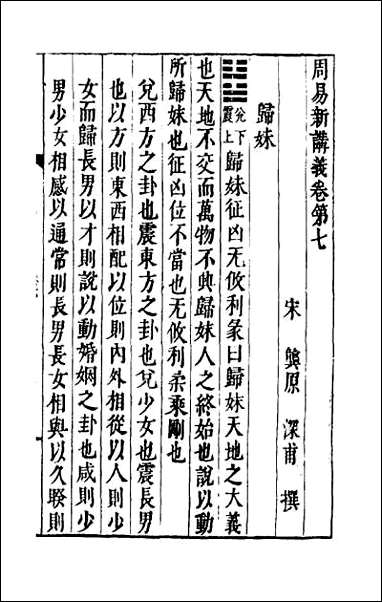 周易新講義卷第七
宋 龔原 深甫 撰
歸妹
䷵兌下震上歸妹征凶无攸利彖曰歸妹天地之大義
也天地不交而萬物不興歸妹人之終始也說以動
所歸妹也征凶位不當也无攸利柔乘剛也
兌西方之卦也震東方之卦也兌少女也震長男
也以方則東西相配以位則內外相從以人則少
女而歸長男以才則說以動婚姻之卦也咸則少
男少女相感以通常則長男長女相與以久睽則